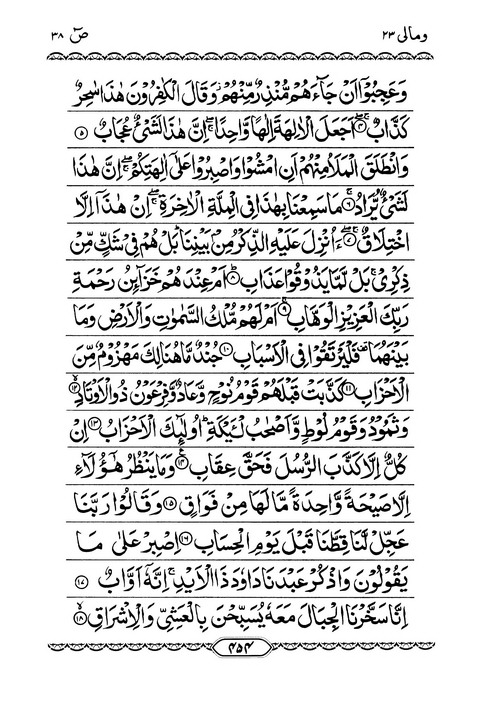 ومالى ٢٣
صٓ ٣٨
وَعَجِبُوْۤا اَنْ جَآءَهُمْ مُّنْذِرٌ مِّنْهُمْ ؗ وَقَالَ الْكٰفِرُوْنَ هٰذَا سٰحِرٌ
كَذَّابٌ ۖۚ ﴿٤﴾ اَجَعَلَ الْاٰلِهَةَ اِلٰهًا وَّاحِدًا ۖۚ اِنَّ هٰذَا لَشَیْءٌ عُجَابٌ ﴿٥﴾
وَانْطَلَقَ الْمَلَاُ مِنْهُمْ اَنِ امْشُوْا وَاصْبِرُوْا عَلٰۤی اٰلِهَتِكُمْ ۖۚ اِنَّ هٰذَا
لَشَیْءٌ یُّرَادُ ۖۚ ﴿٦﴾ مَا سَمِعْنَا بِهٰذَا فِی الْمِلَّةِ الْاٰخِرَةِ ۖۚ اِنْ هٰذَاۤ اِلَّا
اخْتِلَاقٌ ۖۚ ﴿٧﴾ ءَاُنْزِلَ عَلَیْهِ الذِّكْرُ مِنْۢ بَیْنِنَا ؕ بَلْ هُمْ فِیْ شَكٍّ مِّنْ
ذِكْرِیْ ۚ بَلْ لَّمَّا یَذُوْقُوْا عَذَابِ ؕ ﴿٨﴾ اَمْ عِنْدَهُمْ خَزَآئِنُ رَحْمَةِ
رَبِّكَ الْعَزِیْزِ الْوَهَّابِ ۚ ﴿٩﴾ اَمْ لَهُمْ مُّلْكُ السَّمٰوٰتِ وَالْاَرْضِ وَمَا
بَیْنَهُمَا ۫ فَلْیَرْتَقُوْا فِی الْاَسْبَابِ ﴿١٠﴾ جُنْدٌ مَّا هُنَالِكَ مَهْزُوْمٌ مِّنَ
الْاَحْزَابِ ﴿١١﴾ كَذَّبَتْ قَبْلَهُمْ قَوْمُ نُوْحٍ وَّعَادٌ وَّفِرْعَوْنُ ذُو الْاَوْتَادِ ۙ ﴿١٢﴾
وَثَمُوْدُ وَقَوْمُ لُوْطٍ وَّاَصْحٰبُ لْـَٔیْكَةِ ؕ اُولٰٓئِكَ الْاَحْزَابُ ﴿١٣﴾ اِنْ
كُلٌّ اِلَّا كَذَّبَ الرُّسُلَ فَحَقَّ عِقَابِ ۠ ﴿١٤﴾ وَمَا یَنْظُرُ هٰۤؤُلَآءِ
اِلَّا صَیْحَةً وَّاحِدَةً مَّا لَهَا مِنْ فَوَاقٍ ﴿١٥﴾ وَقَالُوْا رَبَّنَا
عَجِّلْ لَّنَا قِطَّنَا قَبْلَ یَوْمِ الْحِسَابِ ﴿١٦﴾ اِصْبِرْ عَلٰی مَا
یَقُوْلُوْنَ وَاذْكُرْ عَبْدَنَا دَاوٗدَ ذَا الْاَیْدِ ۚ اِنَّهٗۤ اَوَّابٌ ﴿١٧﴾
اِنَّا سَخَّرْنَا الْجِبَالَ مَعَهٗ یُسَبِّحْنَ بِالْعَشِیِّ وَالْاِشْرَاقِ ۙ ﴿١٨﴾
٤٥٤